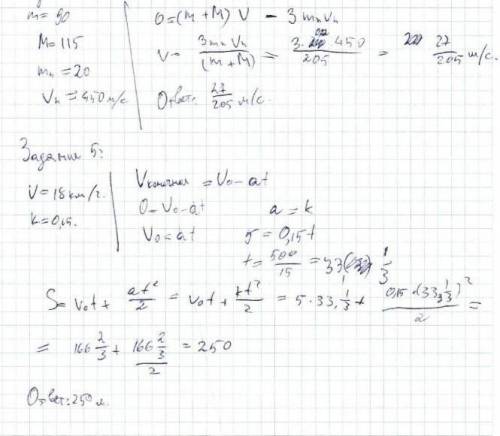 m = 90
M = 115
mп = 20
Vп = 450 м/с
0 = (m + M) V - 3 mп Vп
V = 3 mп Vп / (m + M) = 3 · 0,02 · 450 / 205 = 27/205 м/с.
Ответ: 27/205 м/с.
Задание 5:
V = 18 км/ч.
k = 0,15.
Vконечная = V0 - at
0 = V0 - at
V0 = at
a = k
5 = 0,15 t
t = 500/15 = 33 1/3
S = V0t + at²/2 = V0t + kt²/2 = 5 · 33 1/3 + 0,15 · (33 1/3)²/2 =
= 166 2/3 + 166 2/3 / 2 = 250
Ответ: 250 м.